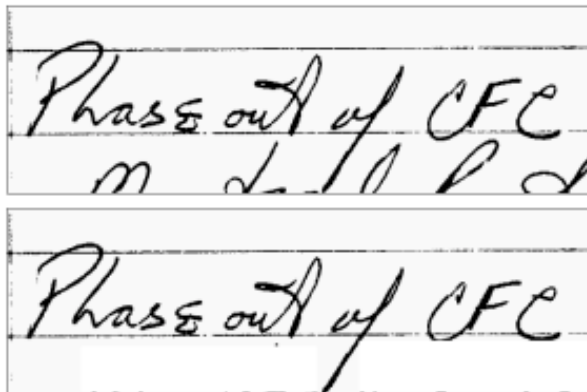 Phase out of CFC
Phase out of CFC